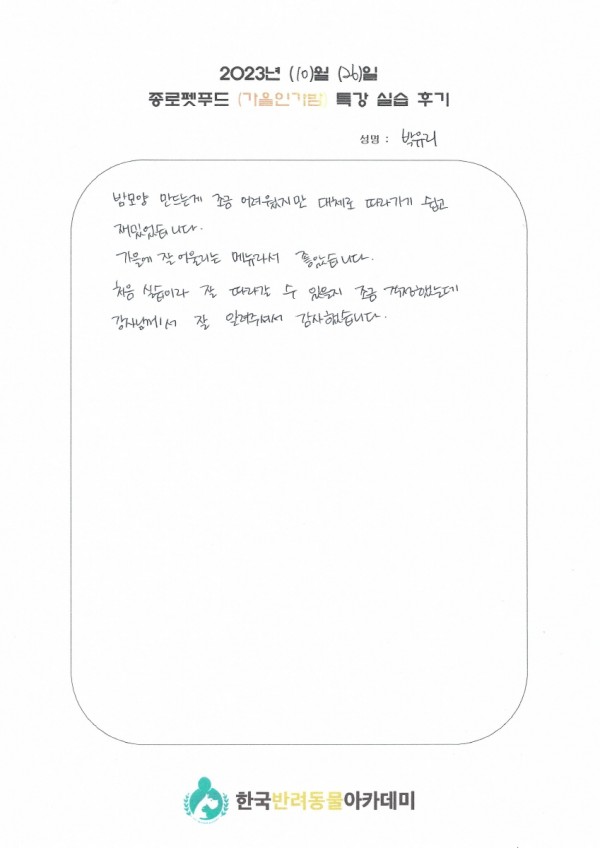 2023년 (10)월 (26)일
종로펫푸드 (가을인기템) 특강 실습 후기
성명 : 박유리
밤모양 만드는게 조금 어려웠지만 대체로 따라가기 쉽고
재밌었습니다.
가을에 잘 어울리는 메뉴라서 좋았습니다.
처음 실습이라 잘 따라갈 수 있을지 조금 걱정했는데
강사님께서 잘 알려주셔서 감사했습니다.
한국반려동물아카데미